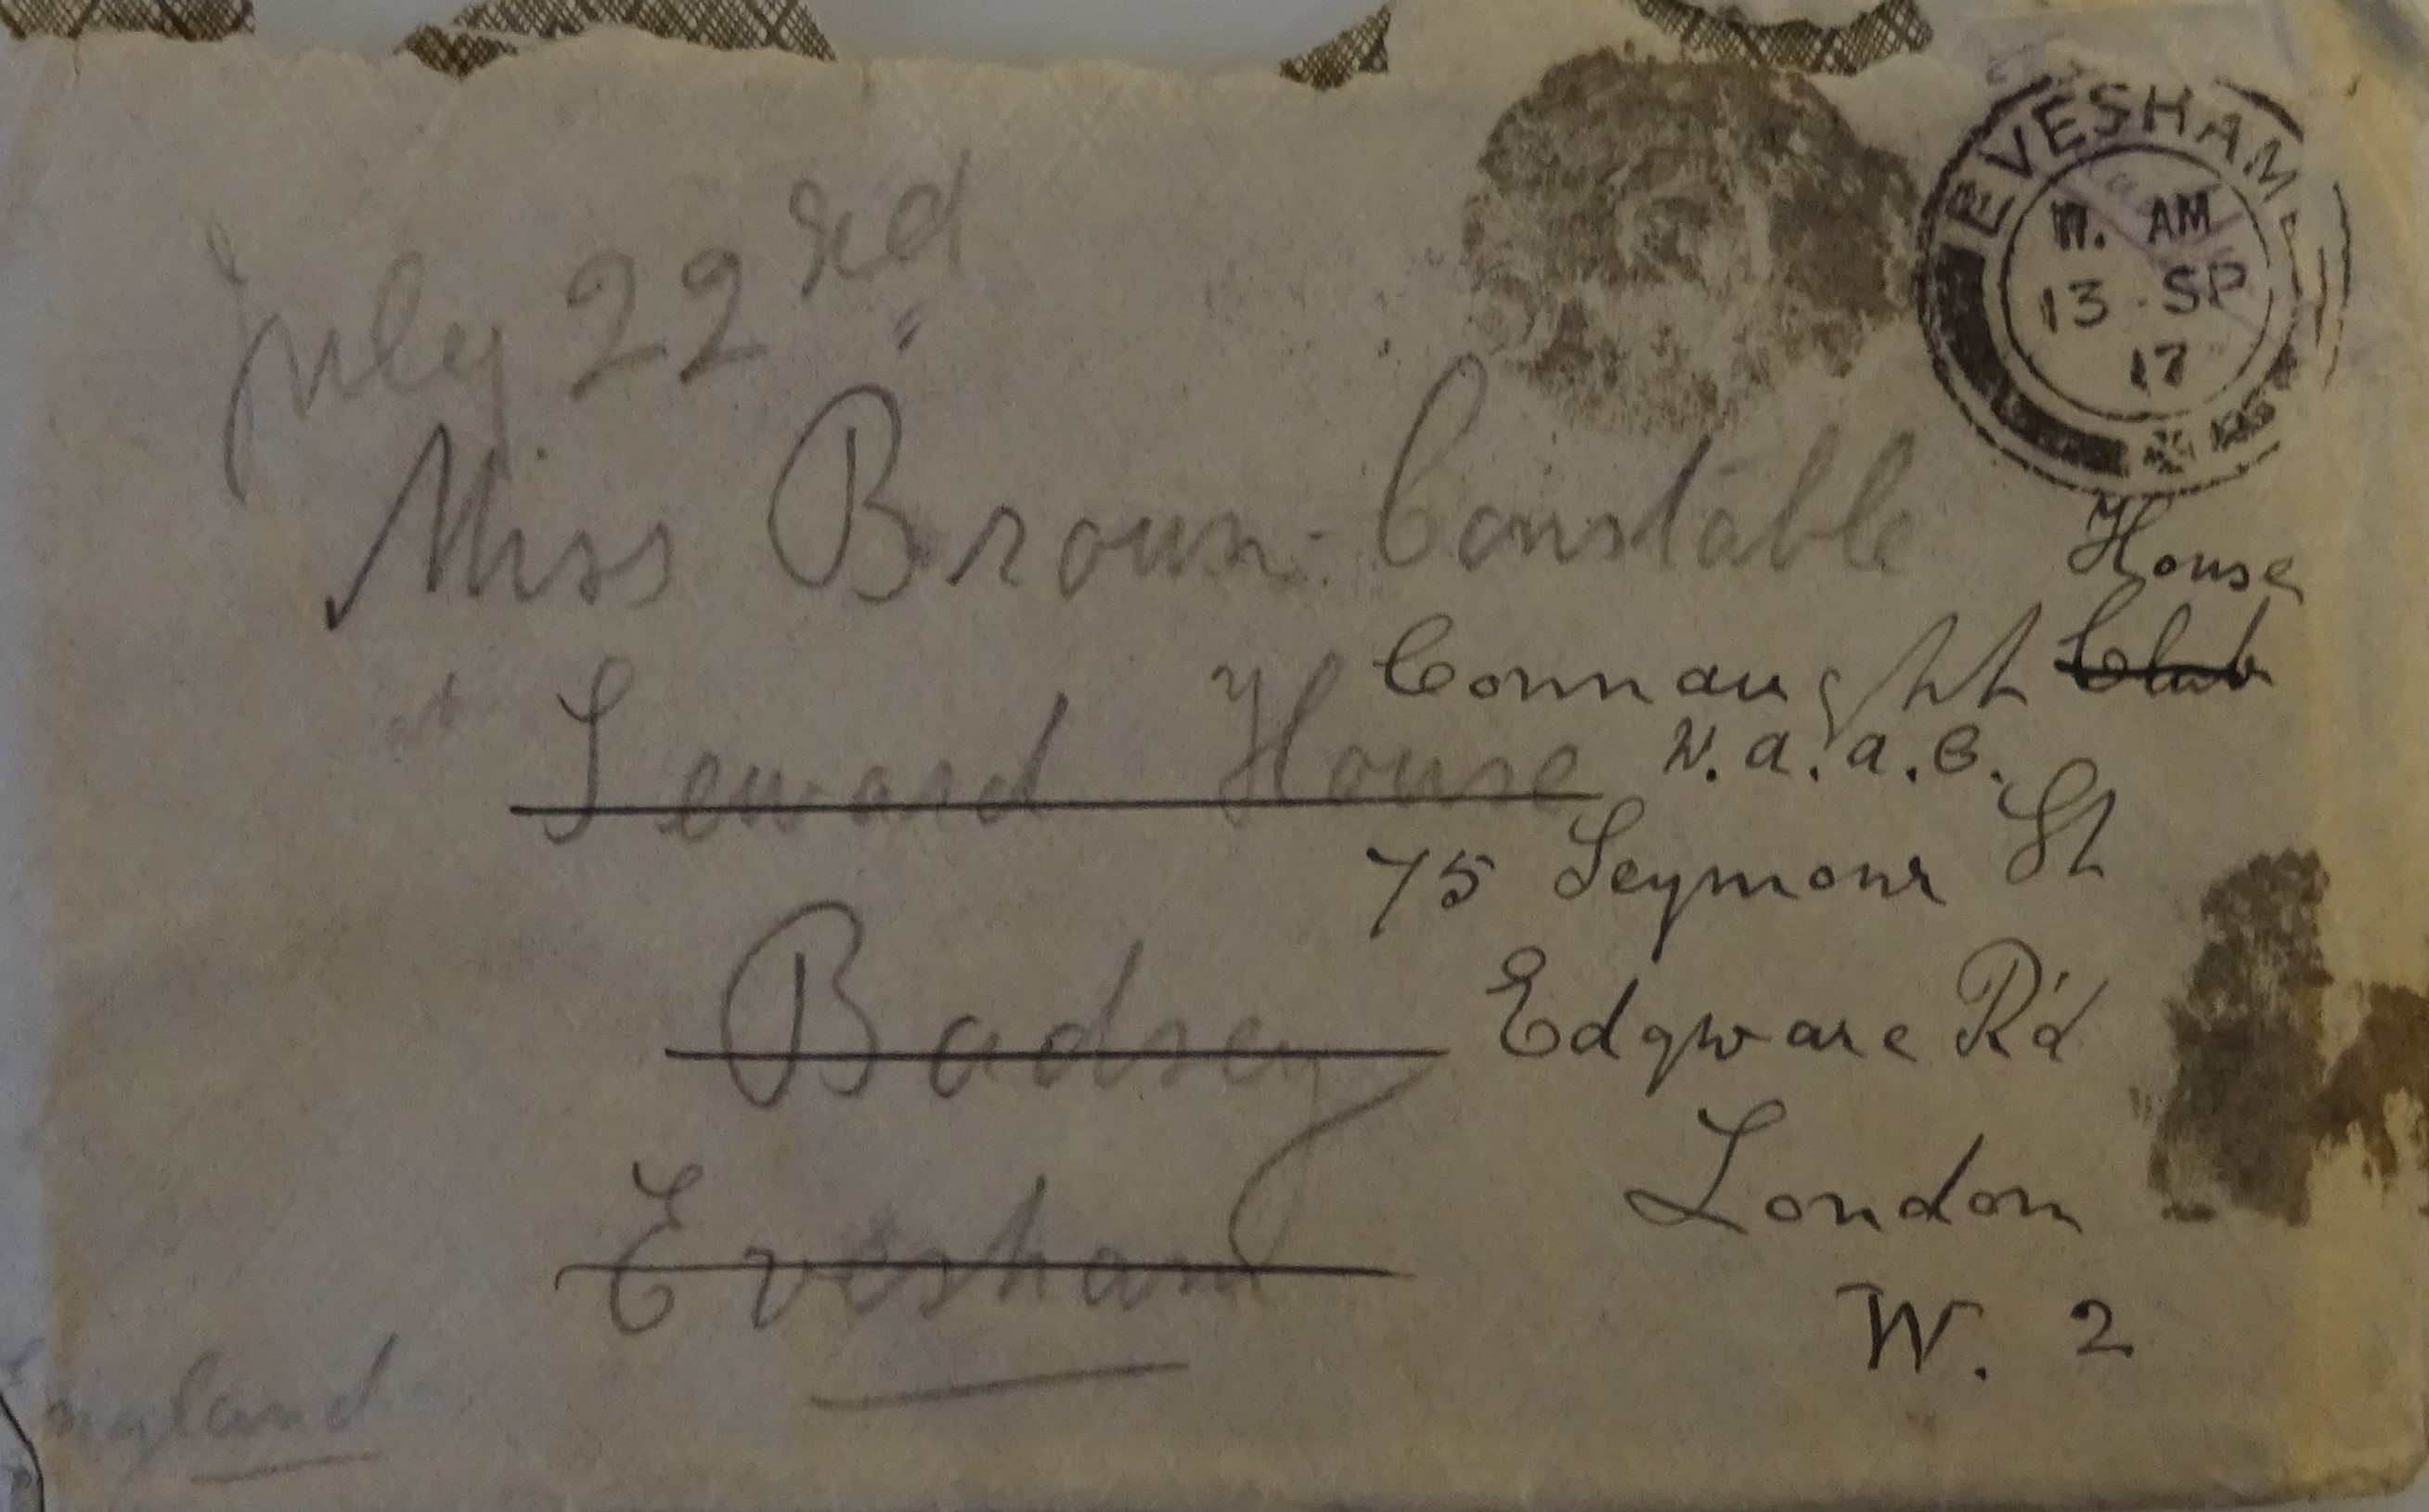 July 22nd
EVESHAM
11. AM
13 SP
17
Miss Broun-Constable
House
Connaught Club
Seward House
W.a.a.C.
75 Seymour St
Badsey
Edgware Rd
London
Evesham
W. 2
England